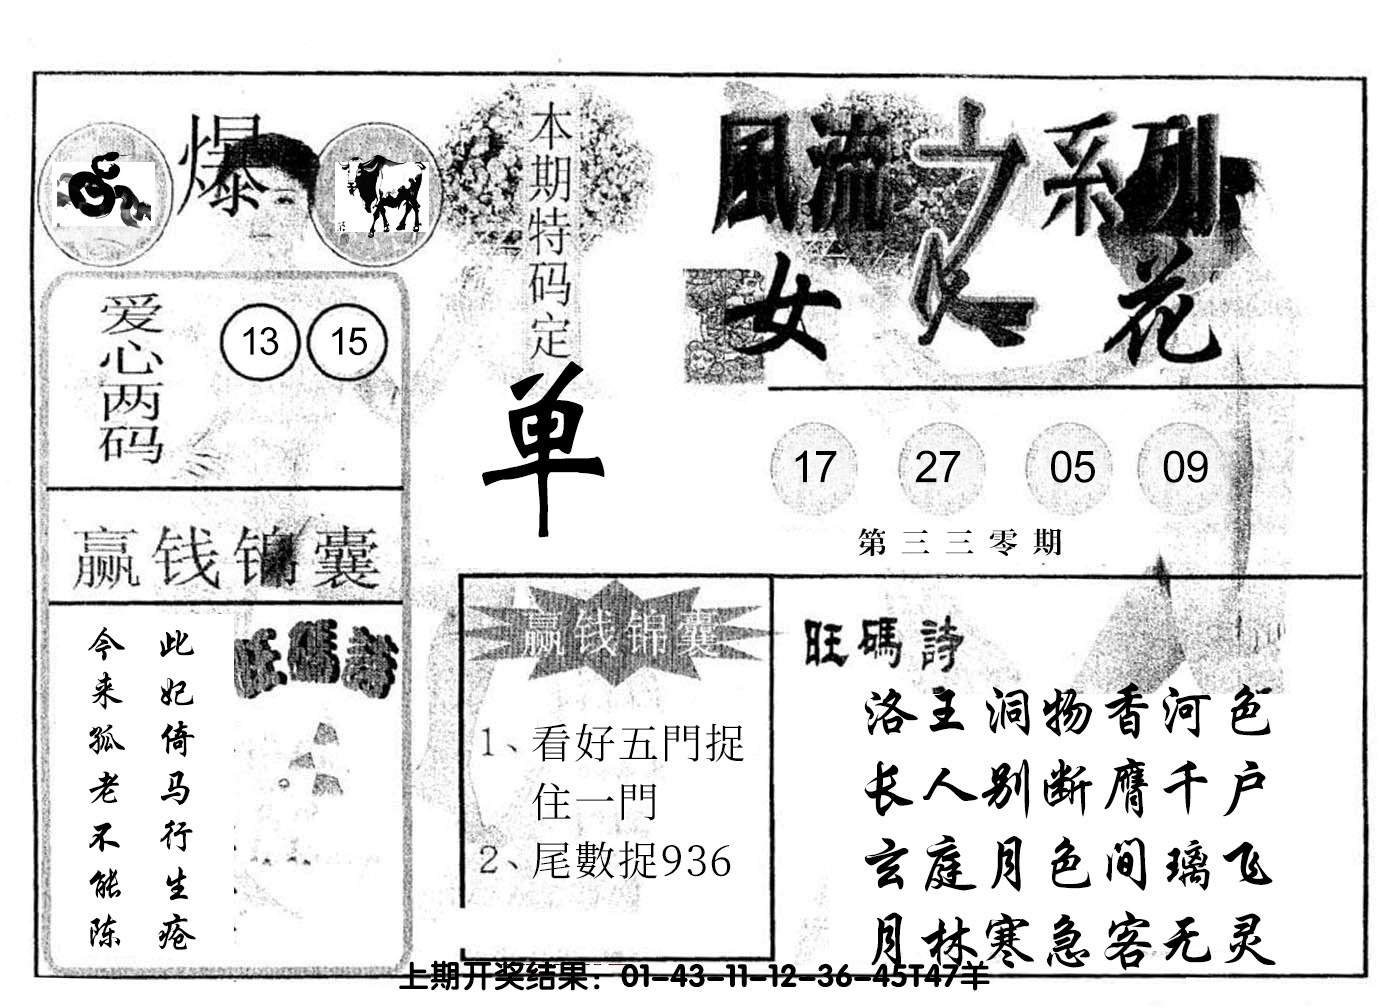 爆
爱心两码
13 15
赢钱锦囊
此妃倚马行生疮
今来狐老不能陈
旺碼詩
本期特码定
单
風流之系列
女人花
17 27 05 09
第三三零期
赢钱锦囊
1、看好五門捉
住一門
2、尾數捉936
旺碼詩
洛王洞物香河色
长人别断膺千户
玄庭月色间璃飞
月林寒急客无灵
上期开奖结果：01-43-11-12-36-45T47羊